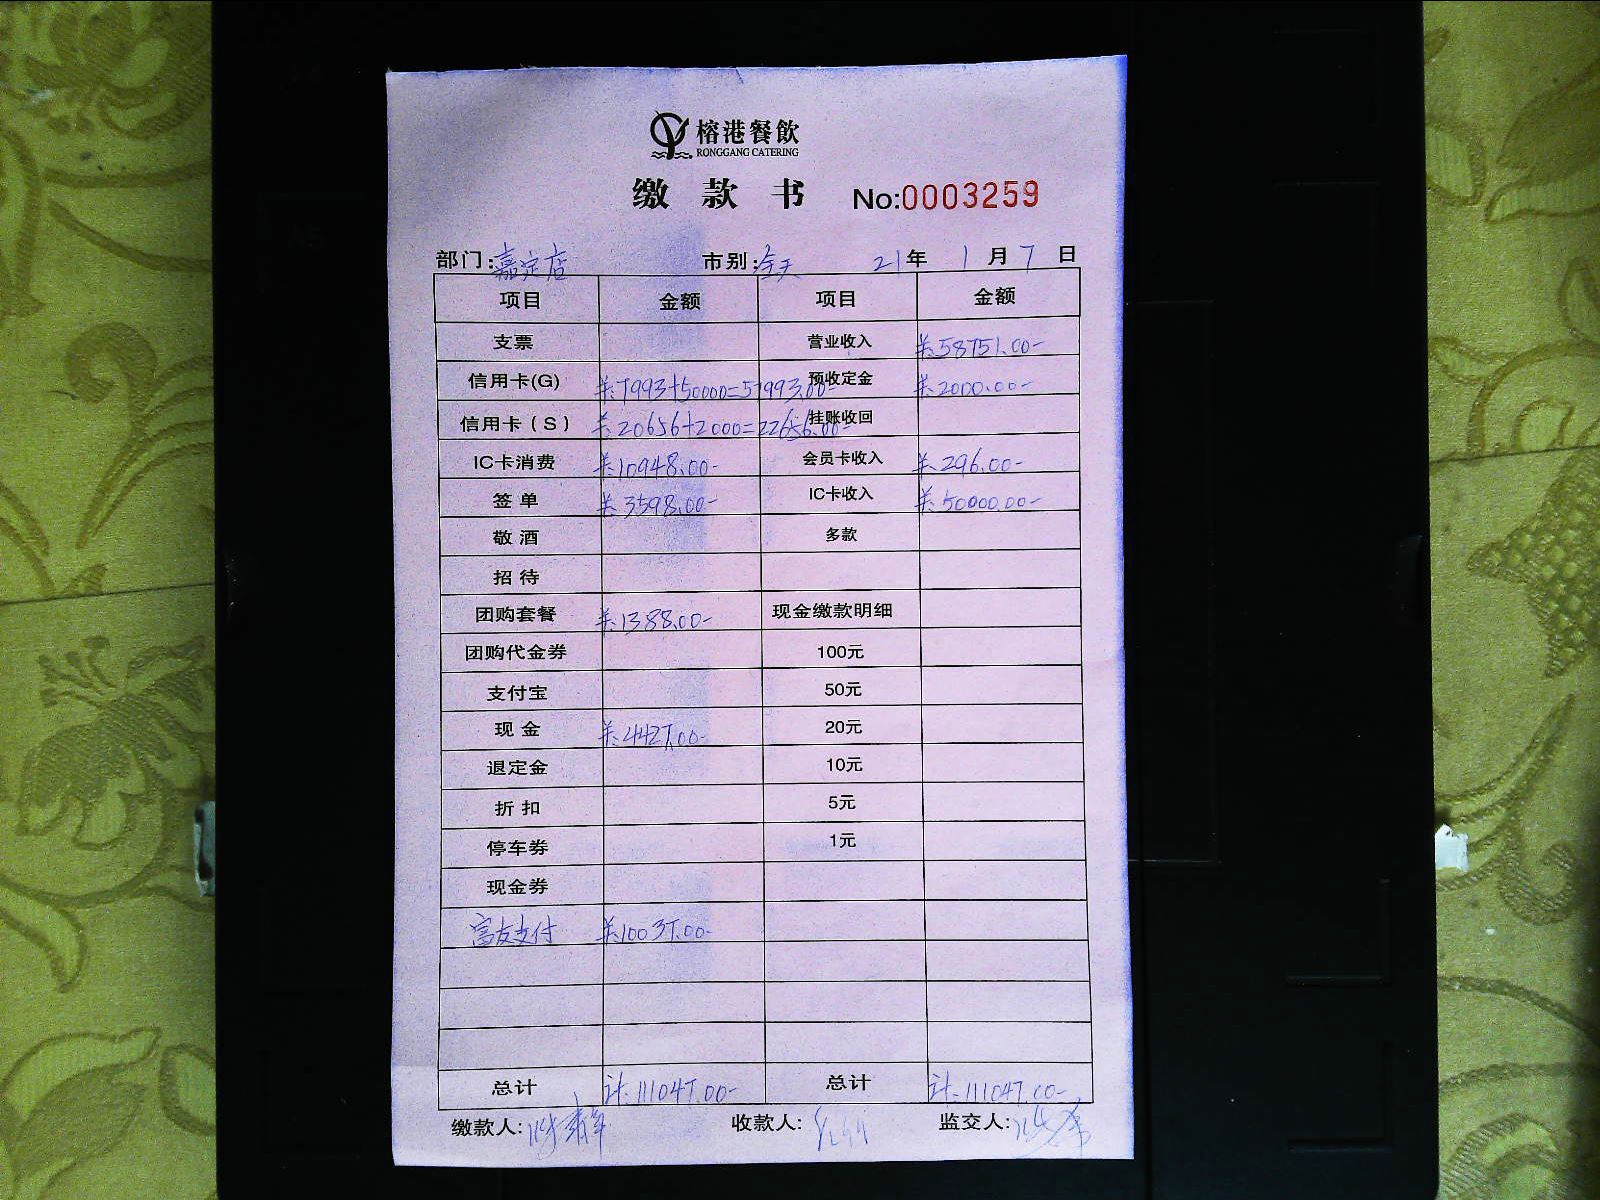 榕港餐飲
RONGGANG CATERING
缴款书 No:0003259
部门:嘉定店 市别:全天 21年1月7日
项目 金额 项目 金额
支票 营业收入 ¥:58751.00-
信用卡(G) ¥:7993+50000=57993.00- 预收定金 ¥:2000.00-
信用卡(S) ¥:20656+2000=22656.00- 挂账收回
IC卡消费 ¥:10948.00- 会员卡收入 ¥:296.00-
签单 ¥:3598.00- IC卡收入 ¥:50000.00-
敬酒 多款
招待
团购套餐 ¥:1388.00- 现金缴款明细
团购代金券 100元
支付宝 50元
现金 ¥:4427.00- 20元
退定金 10元
折扣 5元
停车券 1元
现金券
富友支付 ¥:10037.00-
总计 计:111047.00- 总计 计:111047.00-
缴款人: 收款人: 监交人: